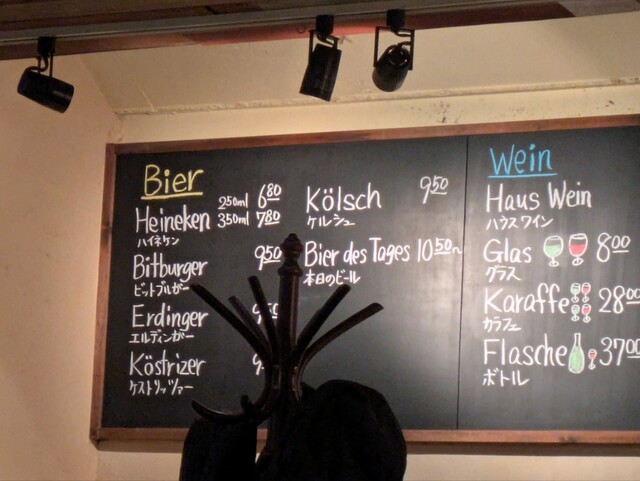 Bier
Heineken 250ml 680
350ml 780
ハイネケン
Bitburger 950
ビットブルガー
Erdinger
エルディンガー
Köstrizer
ケストリッツァー
Kölsch 950
ケルシュ
Bier des Tages 1050~
本日のビール
Wein
Haus Wein
ハウスワイン
Glas 800
グラス
Karaffe 2800
カラフェ
Flasche 3700
ボトル